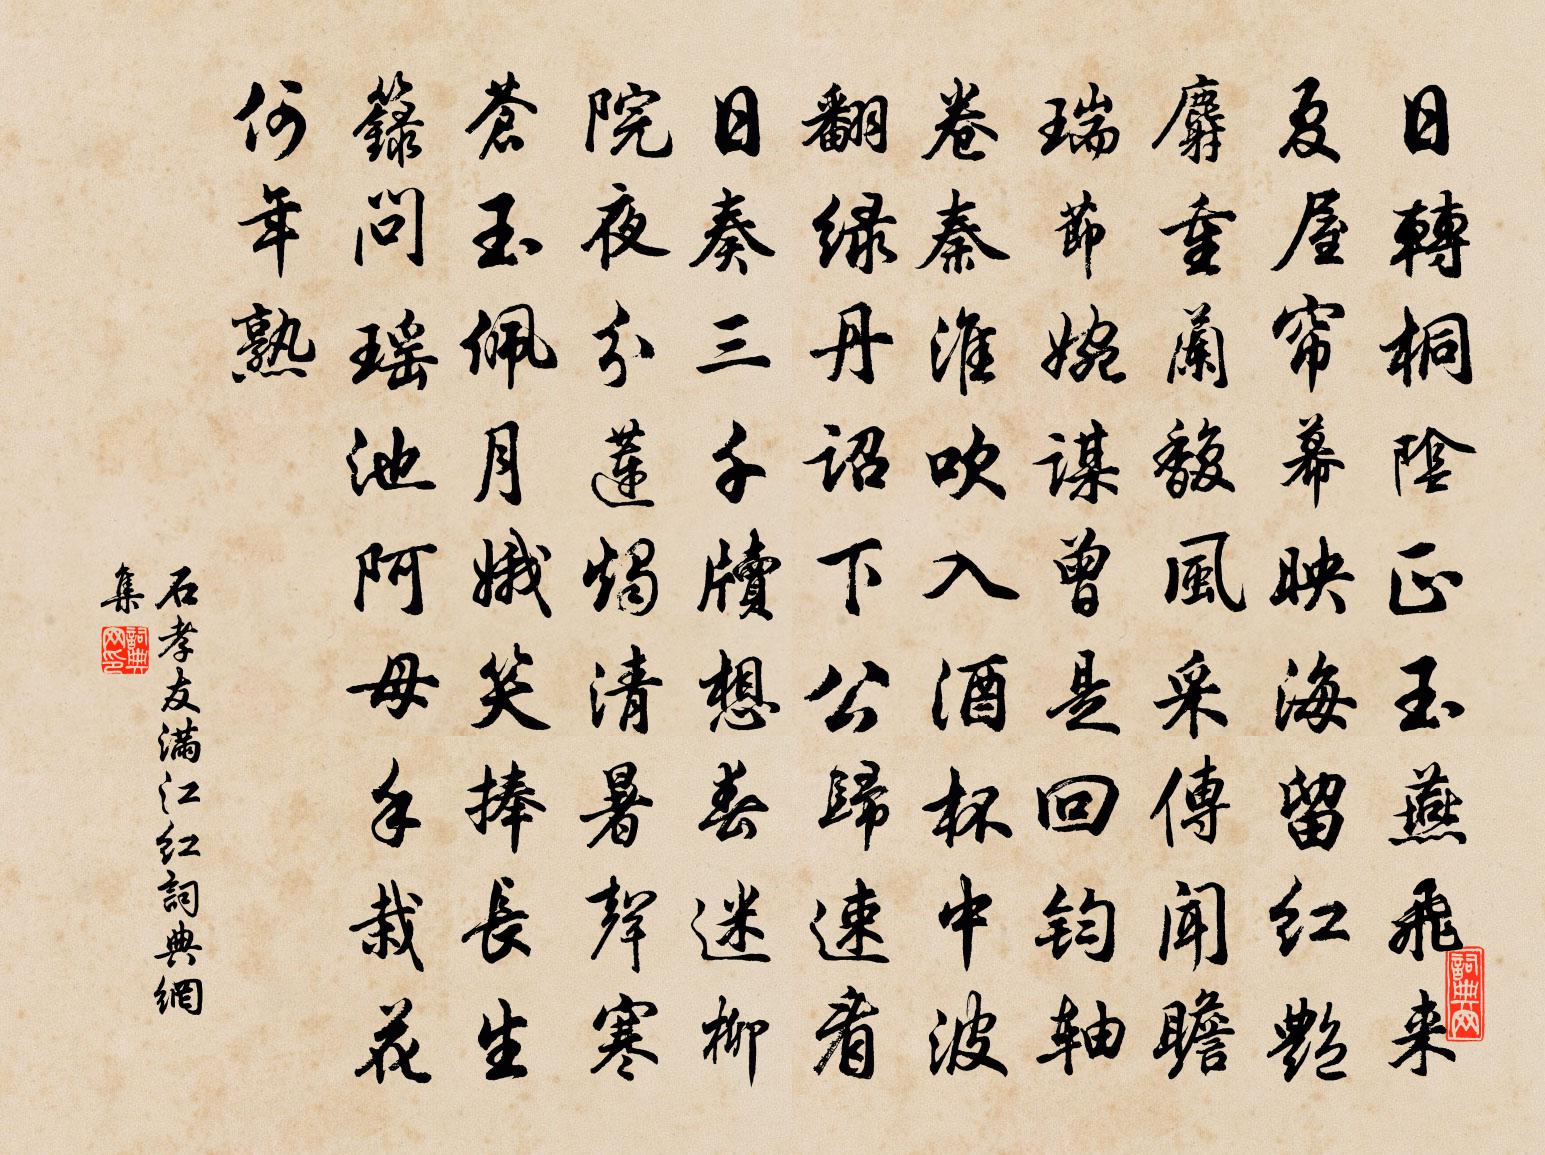 日轉桐陰正玉燕飛来
夏屋帘幕映海留红艷
麝重蘭馥風采傳聞瞻
瑞節婉謀曾是回鈞轴
卷秦淮吹入酒杯中波
翻绿丹詔下公歸速看
日奏三千牘想春迷柳
院夜分蓮燭清暑聲寒
蒼玉佩月娥笑捧長生
籙問瑶池阿母手栽花
何年熟
石孝友满江红詞典網
集
詞典网
詞典网印